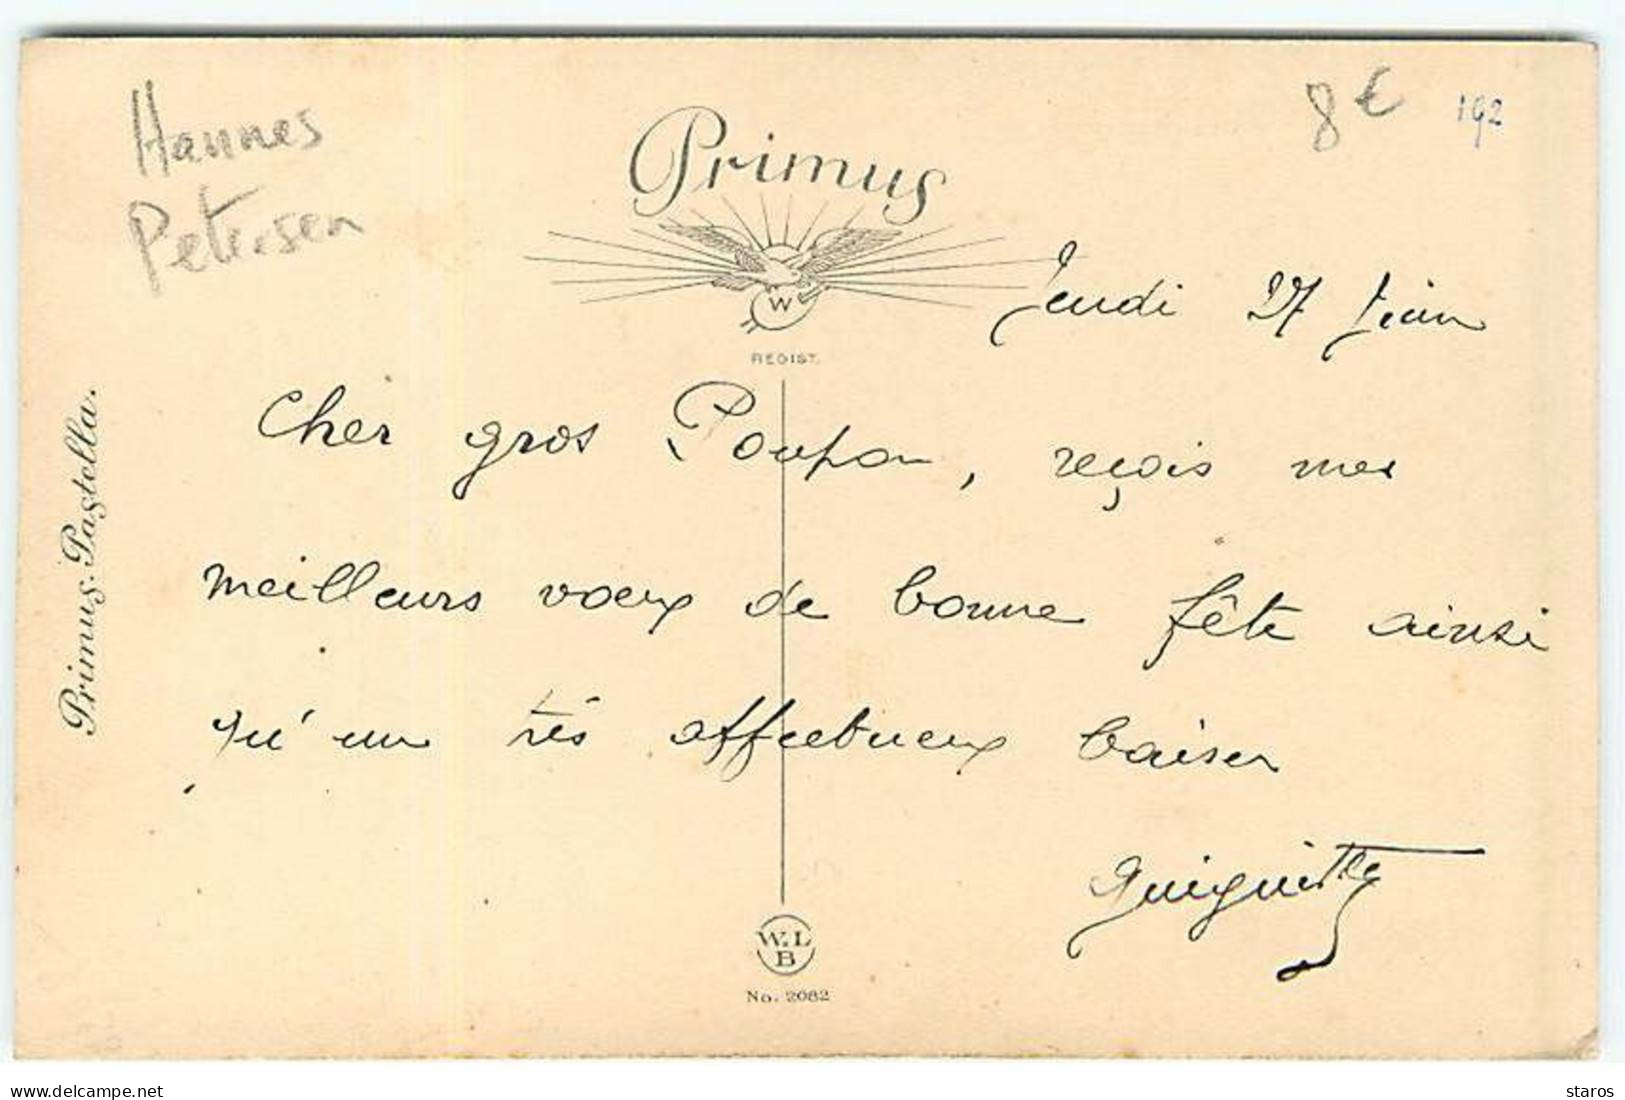 Hannes
Petersen
Primus
8 €
192
W
REGIST.
Jeudi 27 Juin
Cher gros Poupon, reçois mes
meilleurs voeux de bonne fête ainsi
qu'un très affectueux baiser
Guiguitte
Primus-Pastella.
W. L
B
No. 2082
delcampe.net
staros